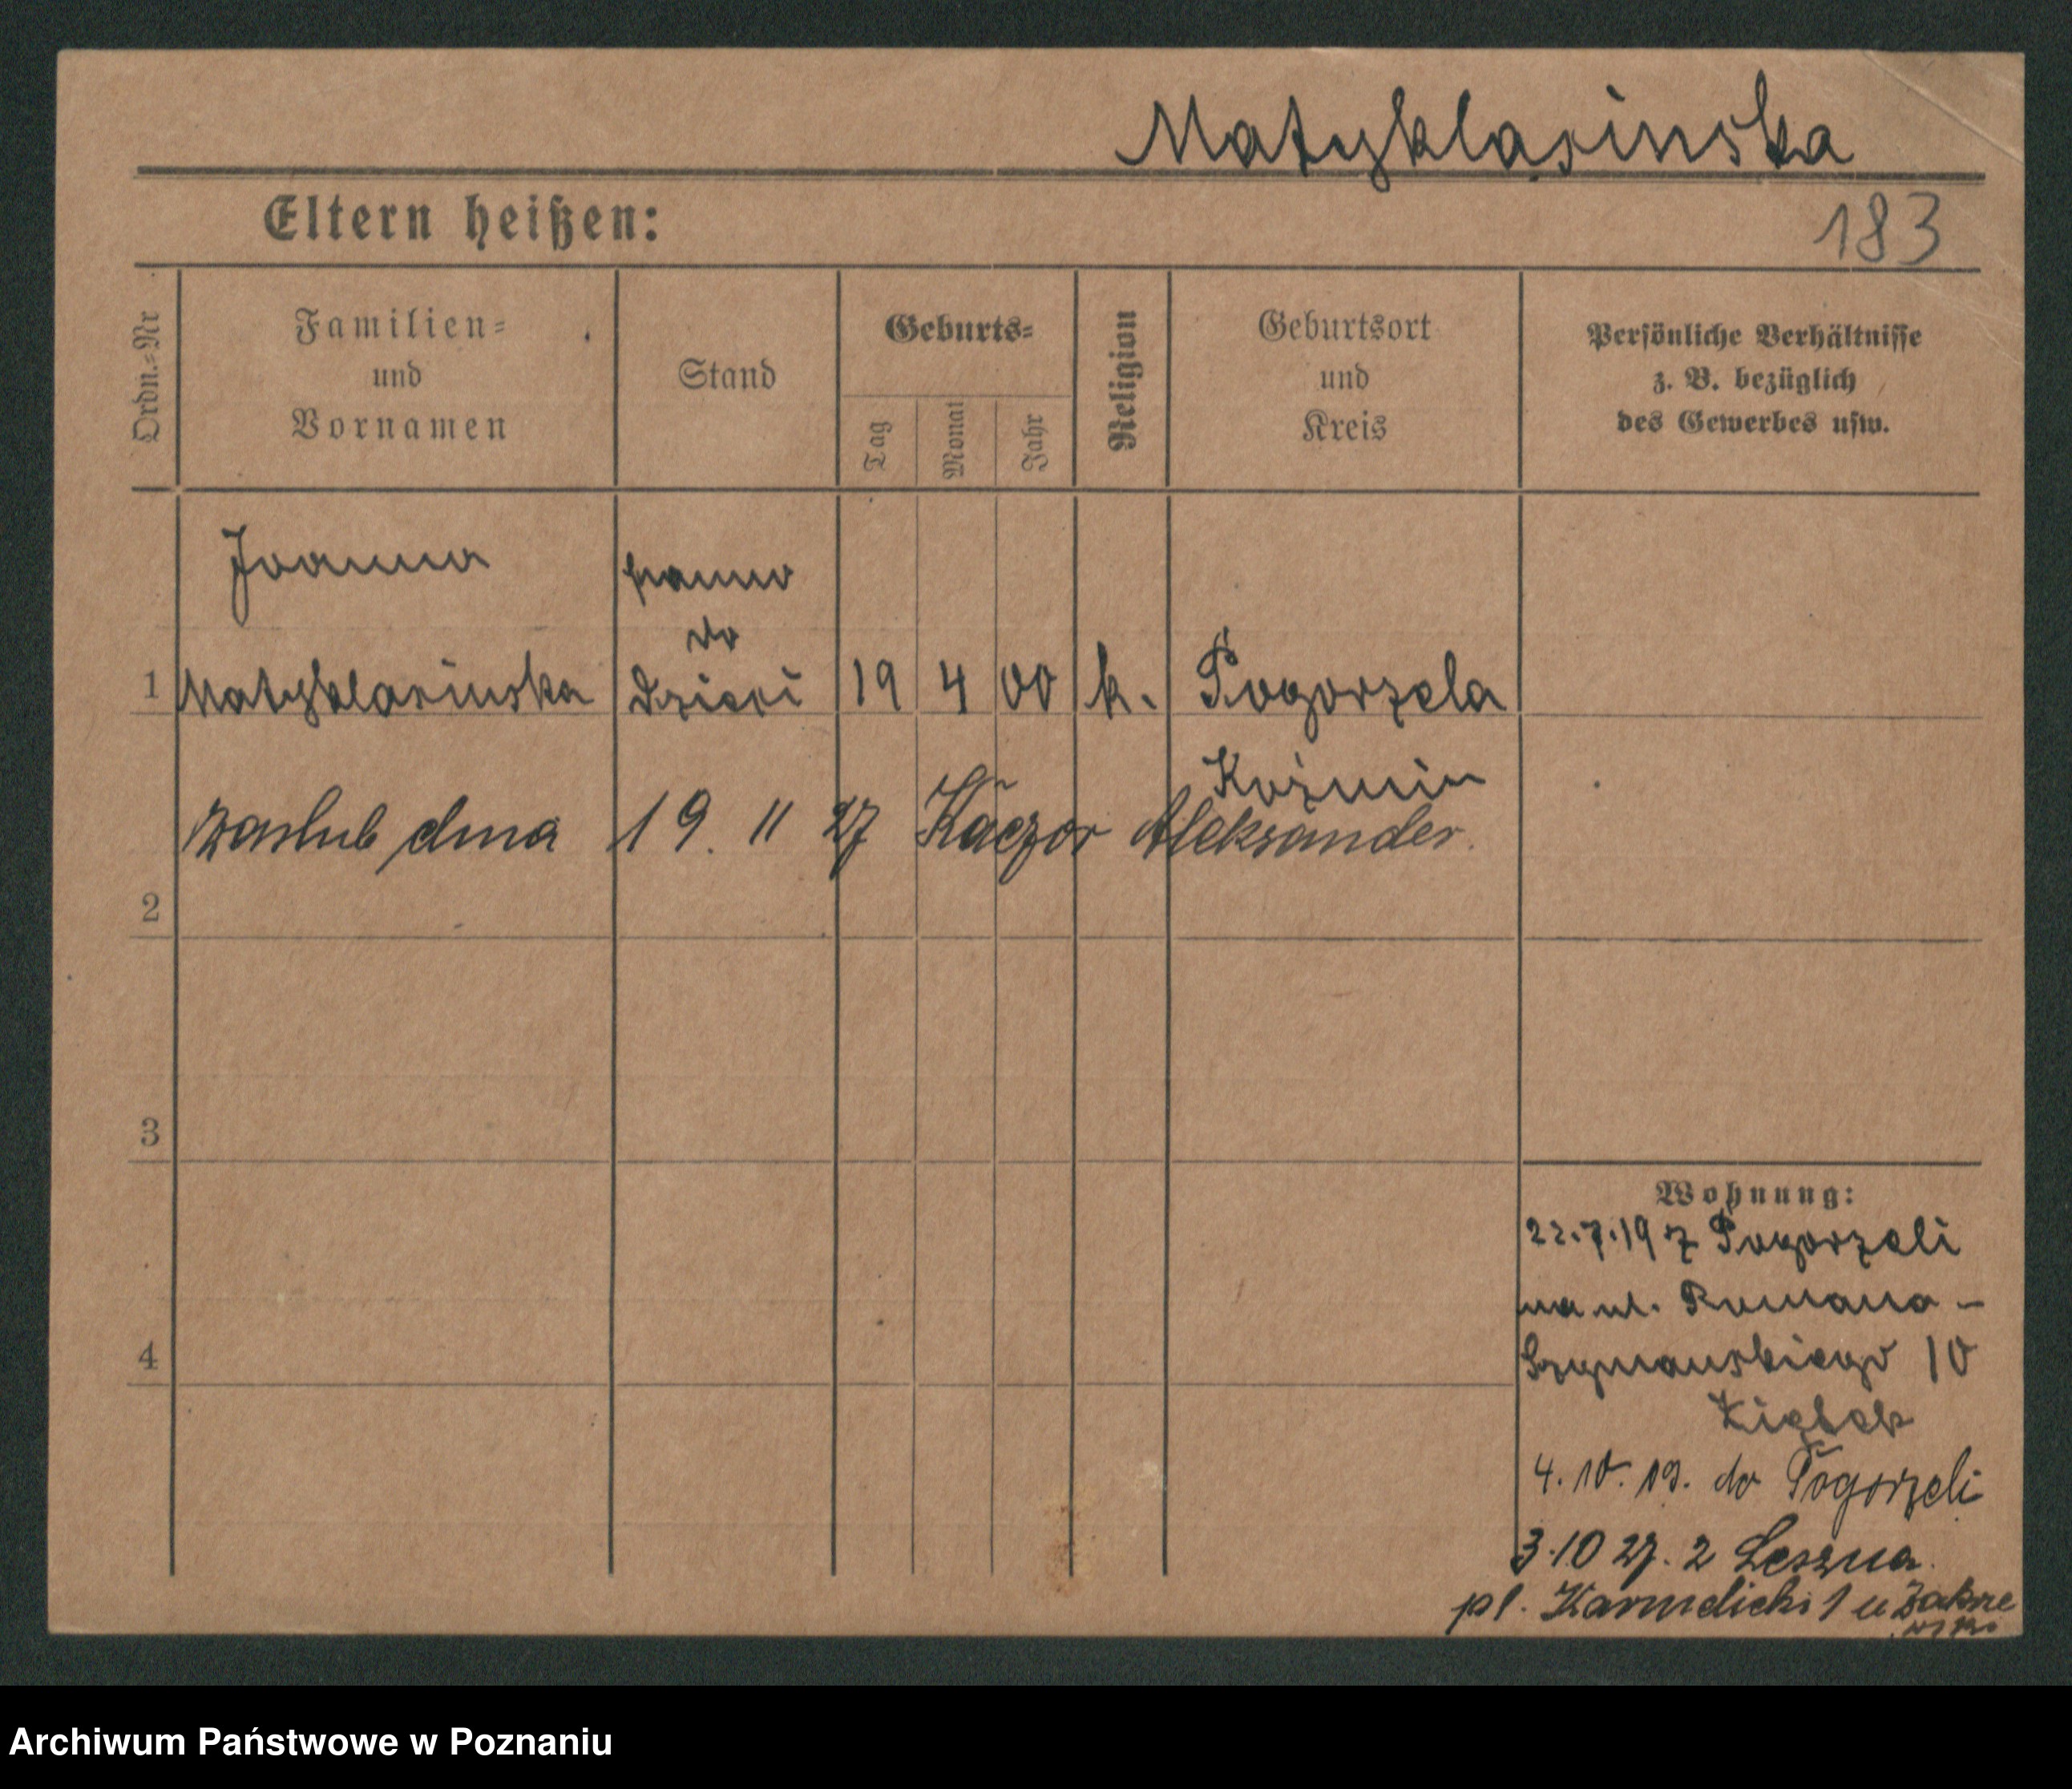 Matyklasinska
Eltern heißen:
183
Ordn.=Nr
Familien=
und
Vornamen
Stand
Geburts=
Tag
Monat
Jahr
Religion
Geburtsort
und
Kreis
Persönliche Verhältnisse
z. B. bezüglich
des Gewerbes usw.
Joanna
panna
do
1 Matyklasinska dzieci 19 4 00 k. Pogorzela
Koźmin
zaslub dnia 19. 11 27 Kaczor Aleksander.
2
3
4
Wohnung:
22.7.19 z Pogorzeli
na ul. Romana-
Szymanskiego 10
4.10.19. do Pogorzeli
3.10 27. z Leszna
pl. Karmelicki 1 u Zakrze
wski
Archiwum Państwowe w Poznaniu